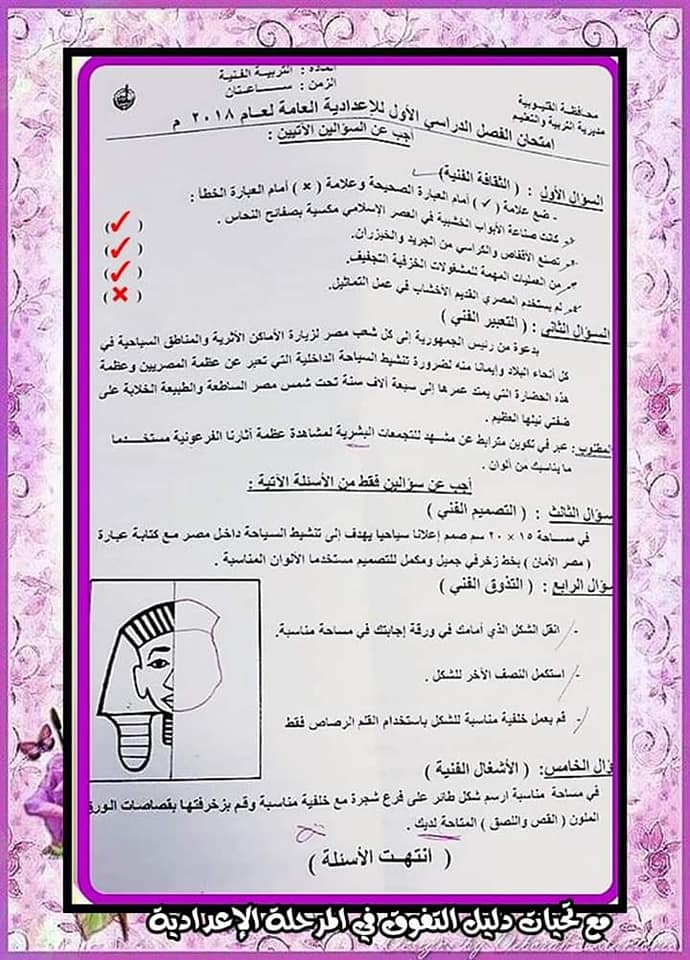 المادة : التربية الفنية
الزمن : ساعتان
محافظة القليوبية
مديرية التربية والتعليم
امتحان الفصل الدراسي الأول للإعدادية العامة لعام ٢٠١٨ م
أجب عن السؤالين الآتيين :
السؤال الأول : ( الثقافة الفنية)
- ضع علامة ( ✓ ) أمام العبارة الصحيحة وعلامة ( × ) أمام العبارة الخطأ :
كانت صناعة الأبواب الخشبية في العصر الإسلامي مكسية بصفائح النحاس . ( ✓ )
تصنع الأقفاص والكراسي من الجريد والخيزران. ( ✓ )
من العمليات المهمة للمشغولات الخزفية التجفيف. ( ✓ )
لم يستخدم المصري القديم الأخشاب في عمل التماثيل. ( × )
السؤال الثاني : ( التعبير الفني )
بدعوة من رئيس الجمهورية إلى كل شعب مصر لزيارة الأماكن الأثرية والمناطق السياحية في
كل أنحاء البلاد وإيمانا منه لضرورة تنشيط السياحة الداخلية التي تعبر عن عظمة المصريين وعظمة
هذه الحضارة التي يمتد عمرها إلى سبعة آلاف سنة تحت شمس مصر الساطعة والطبيعة الخلابة على
ضفتي نيلها العظيم .
المطلوب: عبر في تكوين مترابط عن مشهد للتجمعات البشرية لمشاهدة عظمة آثارنا الفرعونية مستخدما
ما يناسبك من ألوان .
أجب عن سؤالين فقط من الأسئلة الآتية :
سؤال الثالث : ( التصميم الفني )
في مساحة ١٥ × ٢٠ سم صمم إعلانا سياحيا يهدف إلى تنشيط السياحة داخل مصر مع كتابة عبارة
( مصر الأمان ) بخط زخرفي جميل ومكمل للتصميم مستخدما الألوان المناسبة .
سؤال الرابع : ( التذوق الفني )
- انقل الشكل الذي أمامك في ورقة إجابتك في مساحة مناسبة.
- استكمل النصف الآخر للشكل .
- قم بعمل خلفية مناسبة للشكل باستخدام القلم الرصاص فقط
ؤال الخامس: ( الأشغال الفنية )
في مساحة مناسبة ارسم شكل طائر على فرع شجرة مع خلفية مناسبة وقم بزخرفتها بقصاصات الورق
الملون ( القص واللصق ) المتاحة لديك .
( انتهت الأسئلة )
مع تحيات دليل التفوق في المرحلة الإعدادية